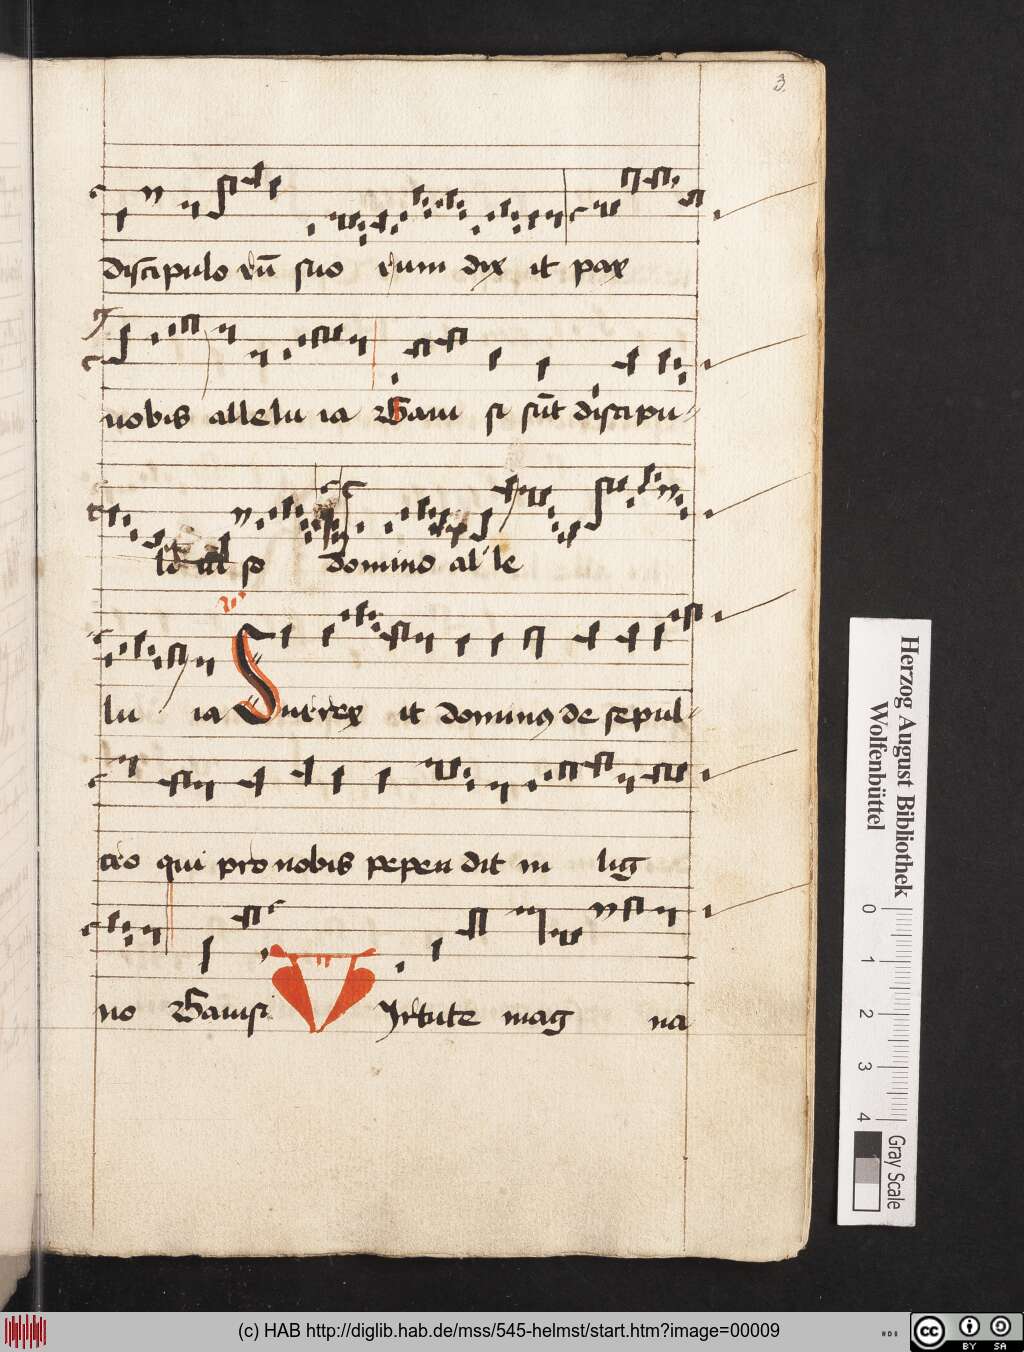 3
discipulo rū suo rum dix it pax
nobis allelu ia Gaui si sūt discipu-
so domino al le
lu ia Surrex it dominꝰ de sepul-
cro qui pro nobis pepen dit in lig
no Gauisi Virtute mag na
Herzog August Bibliothek
Wolfenbüttel
0 1 2 3 4
Gray Scale
(c) HAB http://diglib.hab.de/mss/545-helmst/start.htm?image=00009
cc BY SA